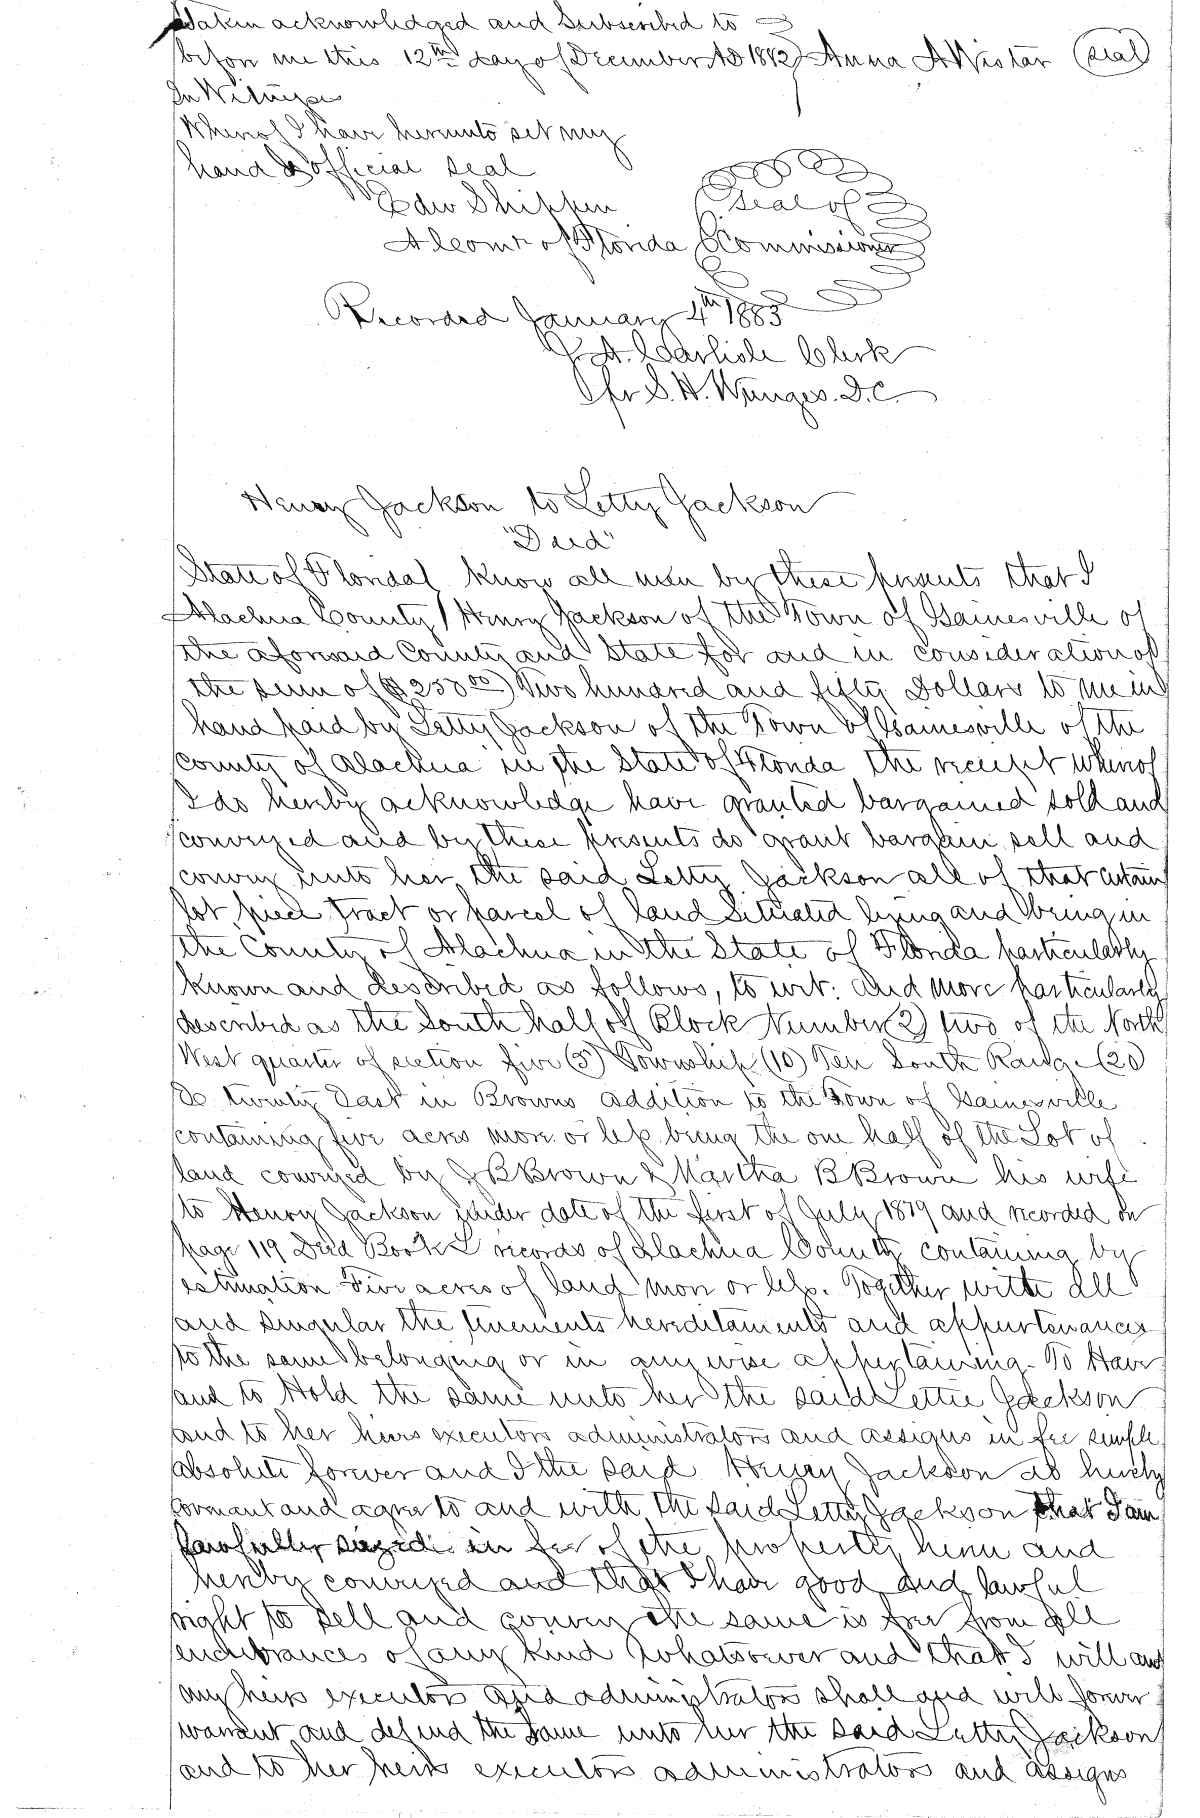 Taken acknowledged and Subscribed to
before me this 12th day of December AD 1882) Anna A Wistar (seal)
In Witness
Whereof I have hereunto set my
hand & official seal
Edw Shippen Seal of
A Comr of Florida Commissioner
Recorded January 4th 1883
J. A. Carlisle Clerk
pr S. H. D.C.
Henry Jackson to Letty Jackson
"Deed"
State of Florida} Know all men by these presents that I
Alachua County } Henry Jackson of the Town of Gainesville of
the aforesaid County and State for and in consideration of
the sum of ($250 00) Two hundred and fifty Dollars to me in
hand paid by Letty Jackson of the Town of Gainesville of the
County of Alachua in the State of Florida the receipt whereof
I do hereby acknowledge have granted bargained sold and
conveyed and by these presents do grant bargain sell and
convey unto her the said Letty Jackson all of that certain
lot piece tract or parcel of land Situated lying and being in
the County of Alachua in the State of Florida particularly
known and described as follows, to wit: and more particularly
described as the South half of Block Number (2) two of the North
West quarter of section five (5) Township (10) Ten South Range (20
& twenty East in Browns addition to the Town of Gainesville
containing five acres more or less being the one half of the Lot of
land conveyed by J B Brown & Martha B Brown his wife
to Henry Jackson under date of the first of July 1879 and recorded on
page 119 Deed Book L records of Alachua County containing by
estimation Five acres of land more or less. Together with all
and singular the tenements hereditaments and appurtenances
to the same belonging or in any wise appertaining. To Have
and to Hold the same unto her the said Lettie Jackson
and to her heirs executors administrators and assigns in fee simple
absolute forever and I the said Henry Jackson do hereby
covenant and agree to and with the said Letty Jackson that I am
lawfully seized in fee of the property herein and
hereby conveyed and that I have good and lawful
right to sell and convey the same is free from all
encumbrances of any kind whatsoever and that I will and
my heirs executors and administrators shall and will forever
warrant and defend the same unto her the said Letty Jackson
and to her heirs executors administrators and assigns